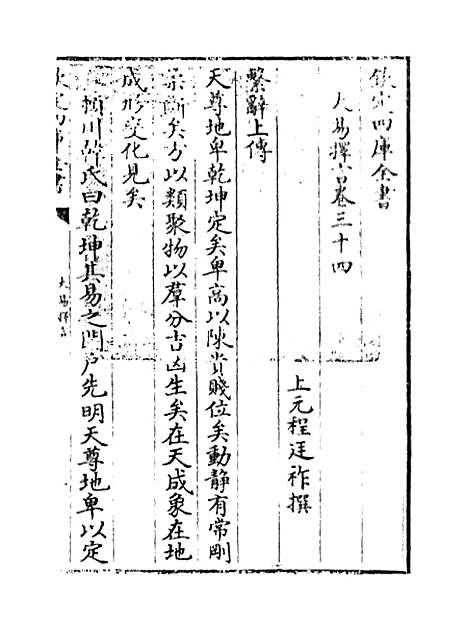 欽定四庫全書
大易擇言卷三十四
上元程廷祚撰
繫辭上傳
天尊地卑乾坤定矣卑高以陳貴賤位矣動靜有常剛
柔斷矣方以類聚物以羣分吉凶生矣在天成象在地
成形變化見矣
潁川韓氏曰乾坤其易之門户先明天尊地卑以定
欽定四庫全書
大易擇言